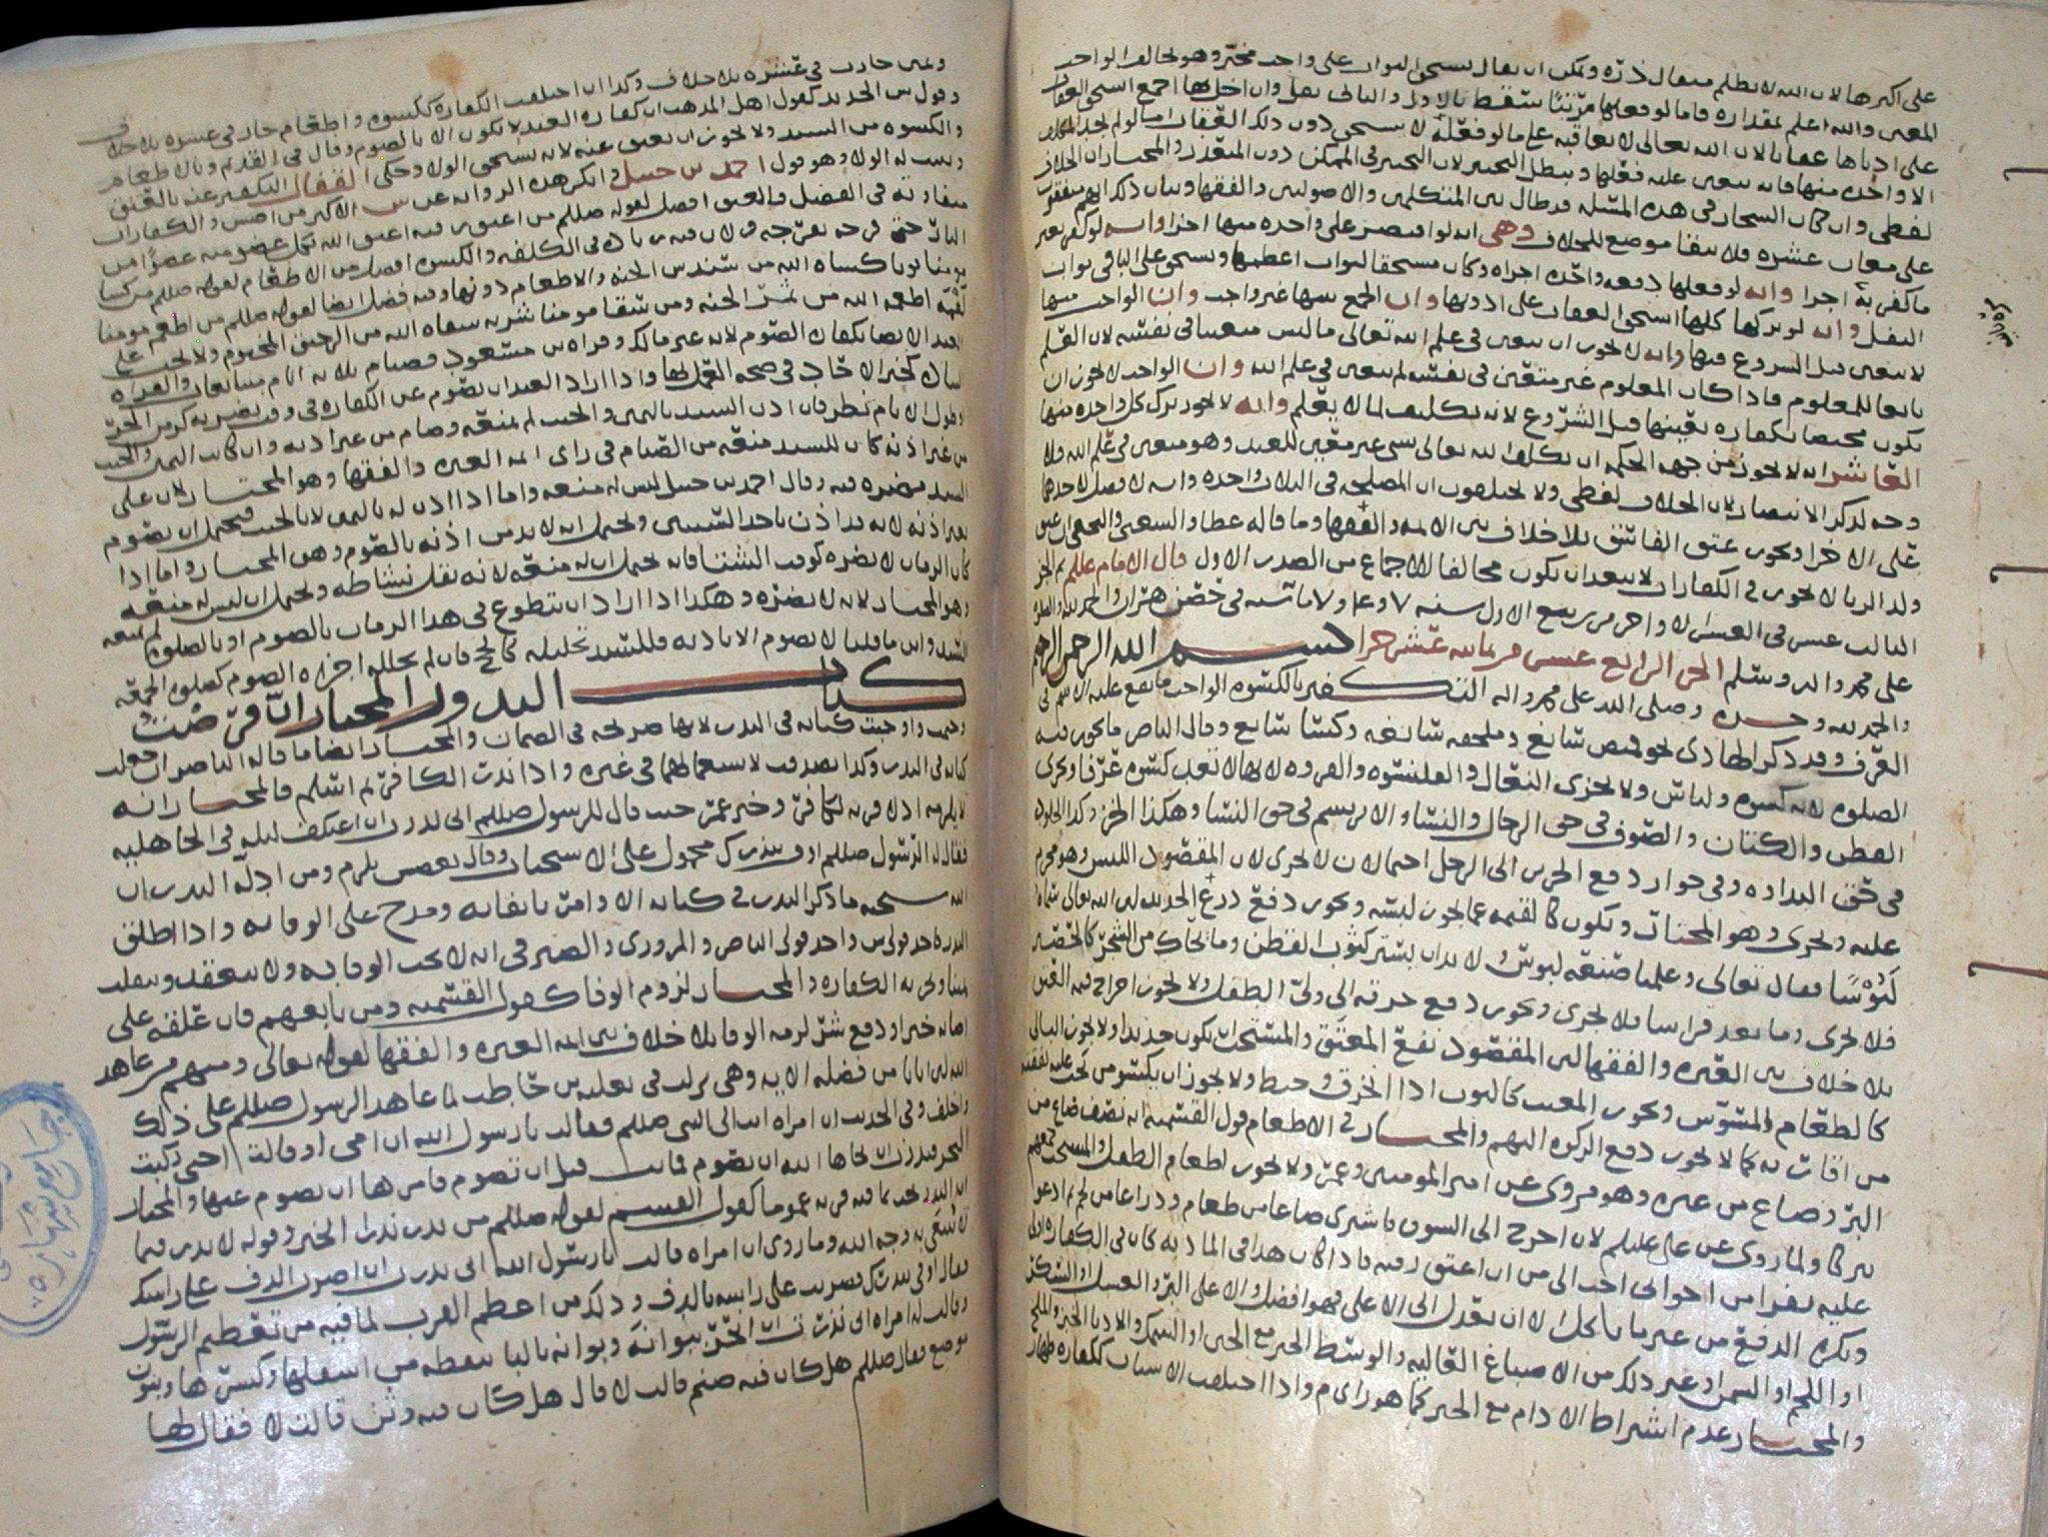 على اكبرها لان الله لا يظلم مثقال ذرة ويمكن ان يقال يستحق الثواب على واحد مخير وهو بخالف الواحد
المعين والله اعلم بمقداره فاما لو فعلها مرتبا سقط بالاول والباقي نفل وان اخل بها اجمع استحق العقاب
على ادناها عقابا لان الله تعالى لا يعاقبه على ما لو فعله لا يستحق دون ذلك العقاب اما لو لم يجد المكلف
الا واحدة منها فانه يتعين عليه فعلها ويبطل التخيير لان التخيير في الممكن دون المتعذر والمختار ان الخلاف
لفظي وان كان الشجار في هذه المسئلة قد طال بين المتكلمين والاصوليين والفقها وبيان ذلك انهم متفقون
على معان عشره فلا يبقا موضع للخلاف وهي انه لو اقتصر على واحده منها اجزا وانه لو كفر بغير
ما كفر به اجزا وانه لو فعلها دفعه واحده اجزاه وكان مستحقا لثواب اعظمها ويستحق على الباقي ثواب
النفل وانه لو تركها كلها استحق العقاب على ادونها وان الجمع بينها غير واجب وان الواحد منها
لا يتعين قبل الشروع فيها وانه لا يجوز ان يتعين في علم الله تعالى ما ليس متعينا في نفسه لان العلم
تابعا للمعلوم فاذا كان المعلوم غير متعين في نفسه لم يتعين في علم الله وان الواحد لا يجوز ان
يكون مختصا بكفاره بعينها قبل الشروع لانه تكليف لما لا يعلم وانه لا يجوز ترك كل واحده منها
العاشر انه لا يجوز من جهه الحكمه ان يكلف الله تعالى بشي غير معين للعبد وهو متعين في علم الله فلا
وجه لذكر الانتصار لان الخلاف لفظي ولا يختلفون ان المصلحه في الثلاث واحده وانه لا فضل لاحدها
على الاخرا ويجوز عتق الفاسق بلا خلاف بين الائمه والفقها وما قاله عطا والشعبي والنخعي ان عتق
ولد الزنا لا يجوز في الكفارات لا يبعد ان يكون مخالفا للاجماع من الصدر الاول قال الامام عللم تم الجز
الثالث عشر في العشر الاواخر من ربيع الاول سنه ٧ وعا و٧ماتىه في حصن هران والحمد لله والصلوه
على محمد واله وسلم الجز الرابع عشر من ثمانيه عشر جزا بسم الله الرحمن الرحيم
والحمد لله وحده وصلى الله على محمد واله التكفير بالكسوه الواحب ما يقع عليه الاسم في
العرف وقد ذكر الهادي نحو قميص سابغ وملحفه سابغه وكسا سابغ وقال الناصر ما يجوز فيه
الصلوه لانه كسوه ولباس ولا يجزي النعال والقلنسوه والفروه لانها لا تعد كسوه عرفا ويجزي
القطن والكتان والصوف في حق الرجال والنسا والابريسم في حق النسا وهكذا الخز وكذا الجلود
في حق البداوه وفي جواز دفع الحرير الى الرجل احتمالان لا يجزي لان المقصود اللبس وهو محرم
عليه ويجزي وهو المختار ويكون كالقيمه عما يجوز لبسه ويجوز دفع درع الحديد لان الله تعالى سماه
لبوسا فقال تعالى وعلمناه صنعه لبوس ولا بد ان يستر كثوب القطن وما يحاك من الشجر كالحصير
فلا يجزي وما يعد فراشا فلا يجزي ويجوز دفع خرقه الى ولي الطفل ولا يجوز اخراج قيمه العتق
بلا خلاف بين العتره والفقها لان المقصود نفع المعتق والمستحب ان يكون جديدا ولا يجوز البالي
كالطعام المسوس ويجوز المعيب كالثوب اذا انخرق وخيط ولا يجوز ان يكسو من تجب عليه نفقته
من اقاربه كما لا يجوز دفع الزكوه اليهم والمختار في الاطعام قول القسميه انه نصف صاع من
البر وصاع من غيره وهو مروي عن امير المومنين وعمر ولا يجوز اطعام الطفل
تبركا ولما روي عن علي عليلم لان اخرج الى السوق فاشتري صاعا من طعام وذراعا من لحم ثم ادعو
عليه نفرا من اخواني احب الي من ان اعتق رقبه فاذا كان هذا في المادبه كان في الكفاره اولى
ويكره الدفع من غير ما ياكل الا ان يعدل الى الاعلى فهو افضل والاعلى البر والعسل او السكر
او اللحم او السمن او غير ذلك من الاصباغ الغاليه والوسط الخبز مع الخل او السمك والادنا الخبز والملح
والمختار عدم اشتراط الادام مع الخبز كما هو راي م واذا اختلفت الاسباب ككفاره ظهار
ويمين جازت في عشره بلا خلاف وكذا ان اختلفت الكفاره ككسوه واطعام جاز في عشره بلا خلاف
وقول ش الجديد كقول اهل المذهب ان كفاره العبد لا تكون الا بالصوم وقال في القديم وبالاطعام
والكسوه من السيد ولا يجوز ان يعتق عنه لانه يستحق الولا وحكى القفال التكفير عنه بالعتق
ويثبت له الولا وهو قول احمد بن حنبل وانكر هذه الروايه عن ش الاكثر من اصش والكفارات
متفاوته في الفضل والعتق افضل لقوله صللم من اعتق رقبه اعتق الله بكل عضو منه عضوا من
النار حتى فرجه بفرجه ولان فيه زياده في الكلفه والكسوه افضل من الاطعام لقوله صللم من كسا
مومنا ثوبا كساه الله من سندس الجنه والاطعام دونها وفيه فضل ايضا لقوله صللم من اطعم مومنا
لقمه اطعمه الله من ثمر الجنه ومن سقا مومنا شربه سقاه الله من الرحيق المختوم ولا يجب على
العبد الا
وقول الامام نظر فان اذن السيد باليمين والحنث لم يمنعه وصام من غير اذنه وان كانت اليمين والحنث
من غير اذنه كان للسيد منعه من الصيام في راي ائمه العتره والفقها وهو المختار لان على
السيد مضره فيه وقال احمد بن حنبل ليس له منعه واما اذا اذن له باليمين لا بالحنث فيحتمل ان يصوم
بغير اذنه لانه قد اذن باحد السببين ويحتمل انه لا بد من اذنه بالصوم وهو المختار واما اذا
كان الزمان لا يضره كوقت الشتا فانه يحتمل ان له منعه لانه يقل نشاطه ويحتمل ان ليس له منعه
وهو المختار لانه لا يضره وهكذا اذا اراد ان يتطوع في هذا الزمان بالصوم او بالصلوه لم يمنعه
السيد واين ما قلنا لا يصوم الا باذنه فللسيد تحليله كالحج فان لم يحلله اجزاه الصوم كصلوه الجمعه
كتاب النذور المختار ان فرضت
وحب واوجبت كنايه في النذر لانها صريحه في الضمان والمختار ايضا ما قاله الناصر ان جعلت
كنايه في النذر وكذا تصدقت لاستعمالهما في غيره واذا نذر الكافر ثم اسلم فالمختار انه
لا يلزمه اذ لا قربه لكافر وخبر عمر حيث قال للرسول صللم اني نذرت ان اعتكف ليله في الجاهليه
فقال له الرسول صللم اوف بنذرك محمول على الاستحباب وقال بعضش يلزم ومن ادله النذر ان
الله سبحنه ما ذكر النذر في كتابه الا وامر بايفائه ومدح على الوفا به واذا اطلق
النذر فاحد قولي ش واحد قولي الناصر والمروزي والصيرفي انه لا يجب الوفا به ولا ينعقد وينقلب
يمينا ويجزيه الكفاره والمختار لزوم الوفا كقول القسميه ومن تابعهم فان علقه على
اصابه خير او دفع شر لزمه الوفا بلا خلاف بين ائمه العتره والفقها لقوله تعالى ومنهم من عاهد
الله لئن اتانا من فضله الايه وهي نزلت في ثعلبه بن حاطب لما عاهد الرسول صللم على ذلك
واخلف وفي الحديث ان امراه اتت الى النبي صللم فقالت يا رسول الله ان امي او قالت اختي ركبت
البحر فنذرت ان نجاها الله ان تصوم فماتت قبل ان تصوم فامرها ان تصوم عنها والمختار
ان النذر يجب بما فيه قربه عموما كقول القسم لقوله صللم من نذر نذرا الخبر وقوله لا نذر فيما
لا يبتغى به وجه الله وما روي ان امراه قالت يا رسول الله اني نذرت ان اضرب الدف على راسك
فقال اوفي بنذرك فضربت على راسه بالدف وذلك من اعظم القرب لما فيه من تعظيم الرسول
وقالت له امراه اني نذرت نذرا انحر ببوانه وبوانه بالبا بنقطه من اسفلها وكسرها وبنون
موضع فقال صللم هل كان فيه صنم قالت لا قال هل كان فيه وثن قالت لا فقال لها